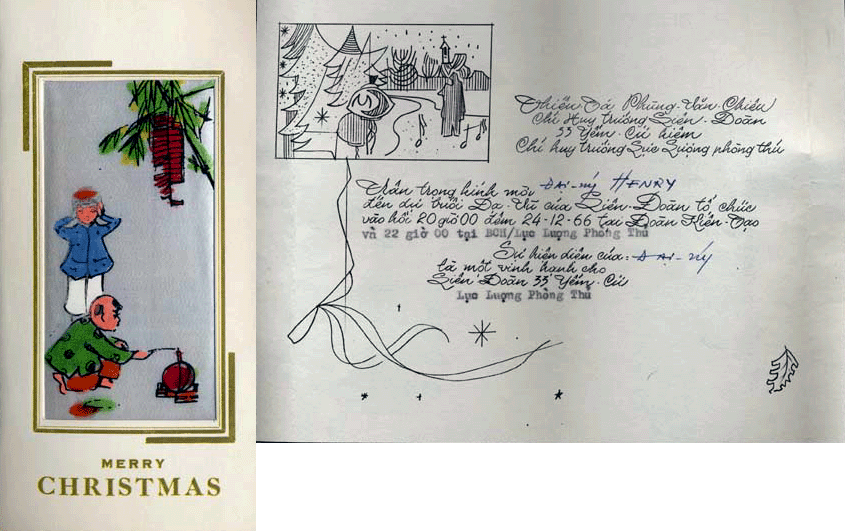 MERRY
CHRISTMAS
Thiếu Tá Phùng-Văn-Chiêu
Chỉ Huy Trưởng Liên-Đoàn
33 Yểm-Cứ kiêm
Chỉ huy trưởng Lực Lượng phòng thủ
Trân trọng kính mời ĐẠI-ÚY HENRY
đến dự buổi Dạ-Vũ của Liên-Đoàn tổ chức
vào hồi 20 giờ 00 đêm 24-12-66 tại Đoàn Kiến-Tạo
và 22 giờ 00 tại BCH/Lực Lượng Phòng Thủ
Sự hiện diện của: ĐẠI-ÚY
là một vinh hạnh cho
Liên-Đoàn 33 Yểm-Cứ
Lực Lượng Phòng Thủ